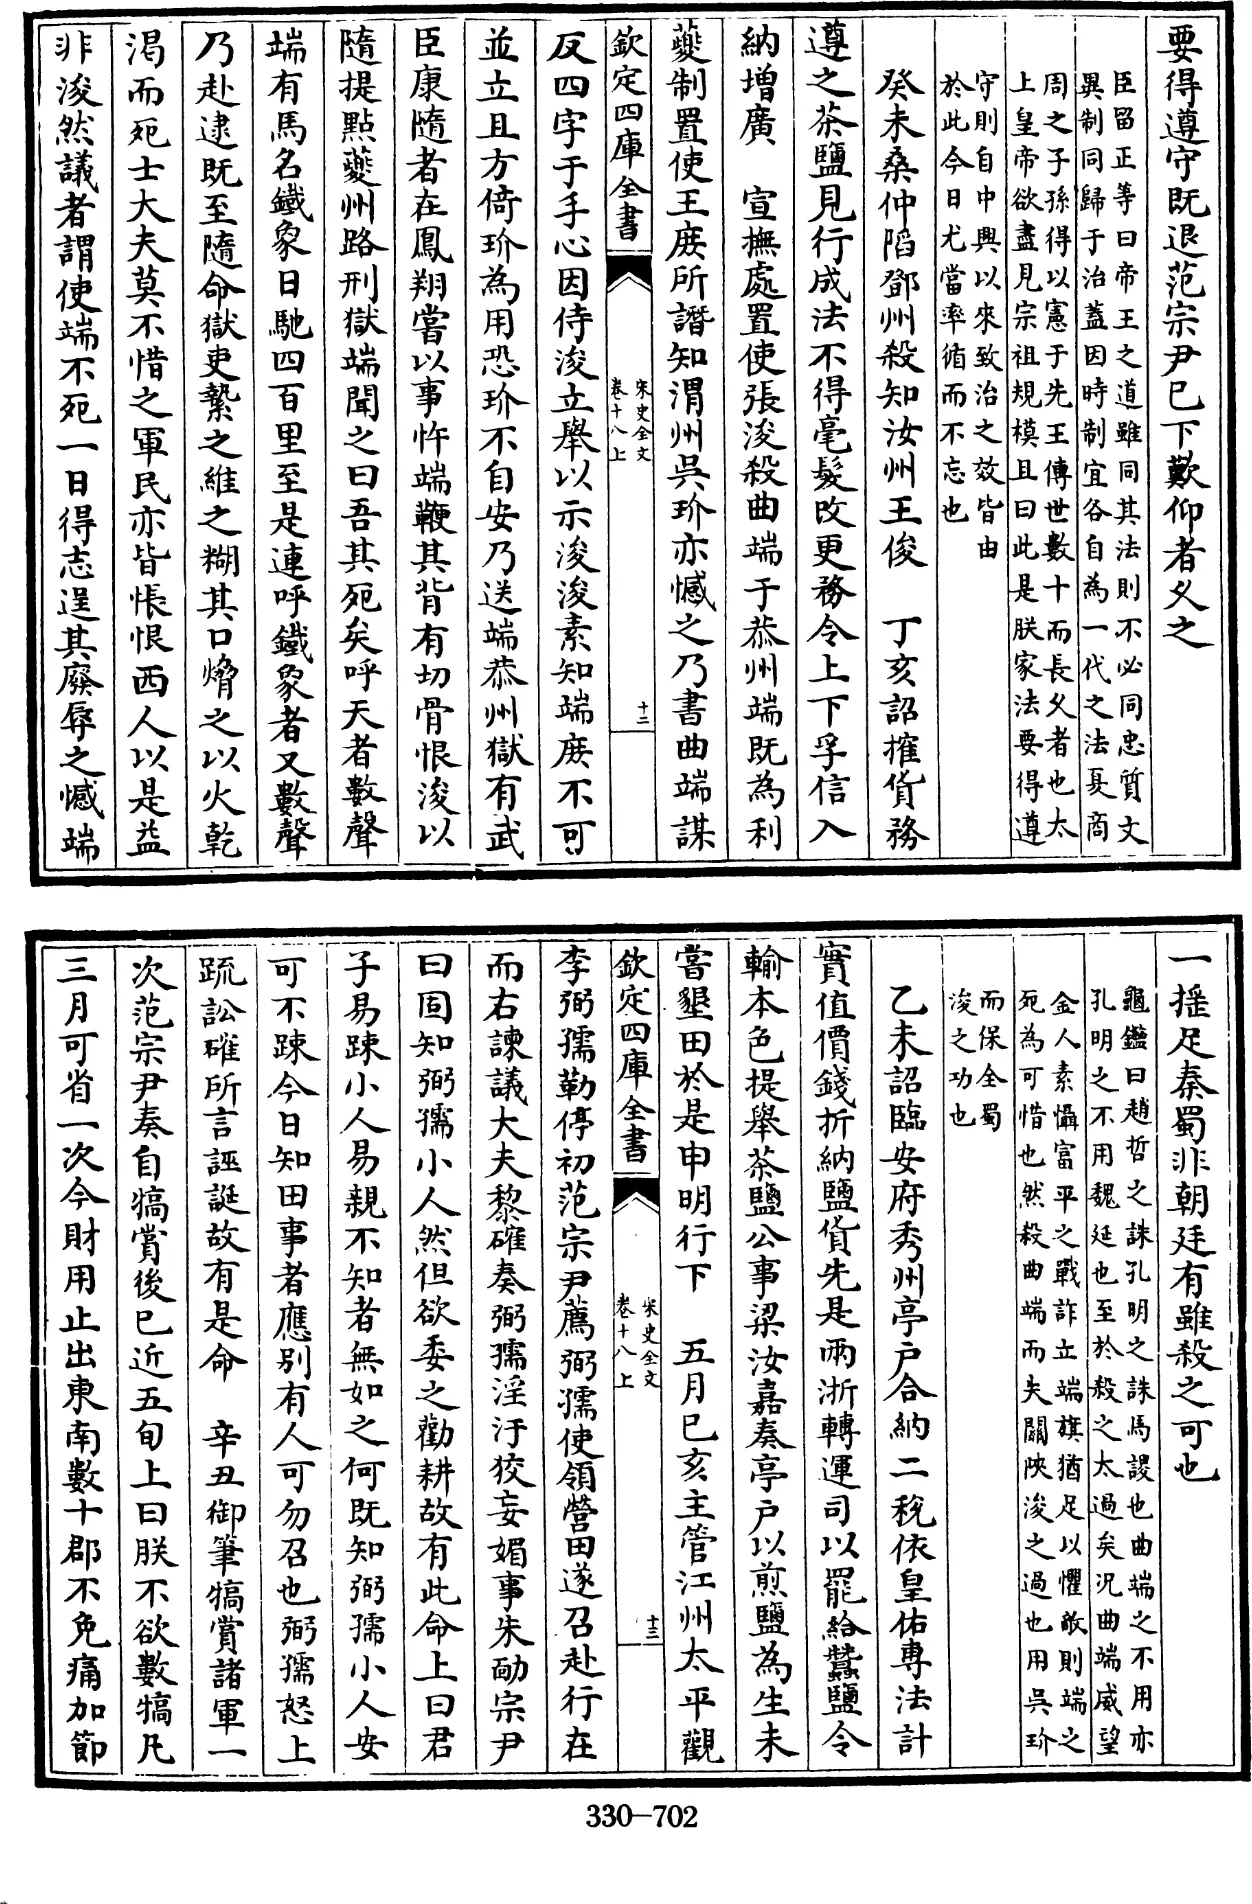 要得遵守既退范宗尹已下歎仰者乆之
臣留正等曰帝王之道雖同其法則不必同忠質文
異制同歸于治蓋因時制宜各自為一代之法夏商
周之子孫得以憲于先王傳世數十而長乆者也太
上皇帝欲盡見宗祖規模且曰此是朕家法要得遵
守則自中興以來致治之效皆由
於此今日尤當率循而不忘也
癸未桑仲陷鄧州殺知汝州王俊　丁亥詔㩁貨務
遵之茶鹽見行成法不得毫髮改更務令上下孚信入
納增廣　宣撫處置使張浚殺曲端于恭州端既為利
夔制置使王庶所譖知渭州吳玠亦憾之乃書曲端謀
欽定四庫全書
宋史全文
卷十八上
十二
反四字于手心因侍浚立舉以示浚浚素知端庶不可
並立且方倚玠為用恐玠不自安乃送端恭州獄有武
臣康隨者在鳳翔嘗以事忤端鞭其背有切骨恨浚以
隨提點夔州路刑獄端聞之曰吾其死矣呼天者數聲
端有馬名鐵象日馳四百里至是連呼鐵象者又數聲
乃赴逮既至隨命獄吏縶之維之糊其口熁之以火乾
渴而死士大夫莫不惜之軍民亦皆悵恨西人以是益
非浚然議者謂使端不死一日得志逞其廢辱之憾端
一揺足秦蜀非朝廷有雖殺之可也
龜鑑曰趙哲之誅孔明之誅馬謖也曲端之不用亦
孔明之不用魏延也至於殺之太過矣况曲端威望
金人素懾富平之戰詐立端旗猶足以懼敵則端之
死為可惜也然殺曲端而失關陜浚之過也用吳玠
而保全蜀
浚之功也
乙未詔臨安府秀州亭戶合納二稅依皇佑專法計
實值價錢折納鹽貨先是兩浙轉運司以罷給蠶鹽令
輸本色提舉茶鹽公事梁汝嘉奏亭戶以煎鹽為生未
嘗墾田於是申明行下　五月已亥主管江州太平觀
欽定四庫全書
宋史全文
卷十八上
十三
李弼孺勒停初范宗尹薦弼孺使領營田遂召赴行在
而右諫議大夫黎確奏弼孺淫汙狡妄媚事朱勔宗尹
曰固知弼孺小人然但欲委之勸耕故有此命上曰君
子易踈小人易親不知者無如之何既知弼孺小人安
可不踈今日知田事者應别有人可勿召也弼孺怒上
䟽訟確所言誣誕故有是命　辛丑御筆犒賞諸軍一
次范宗尹奏自犒賞後已近五旬上曰朕不欲數犒凡
三月可省一次今財用止出東南數十郡不免痛加節
330—702